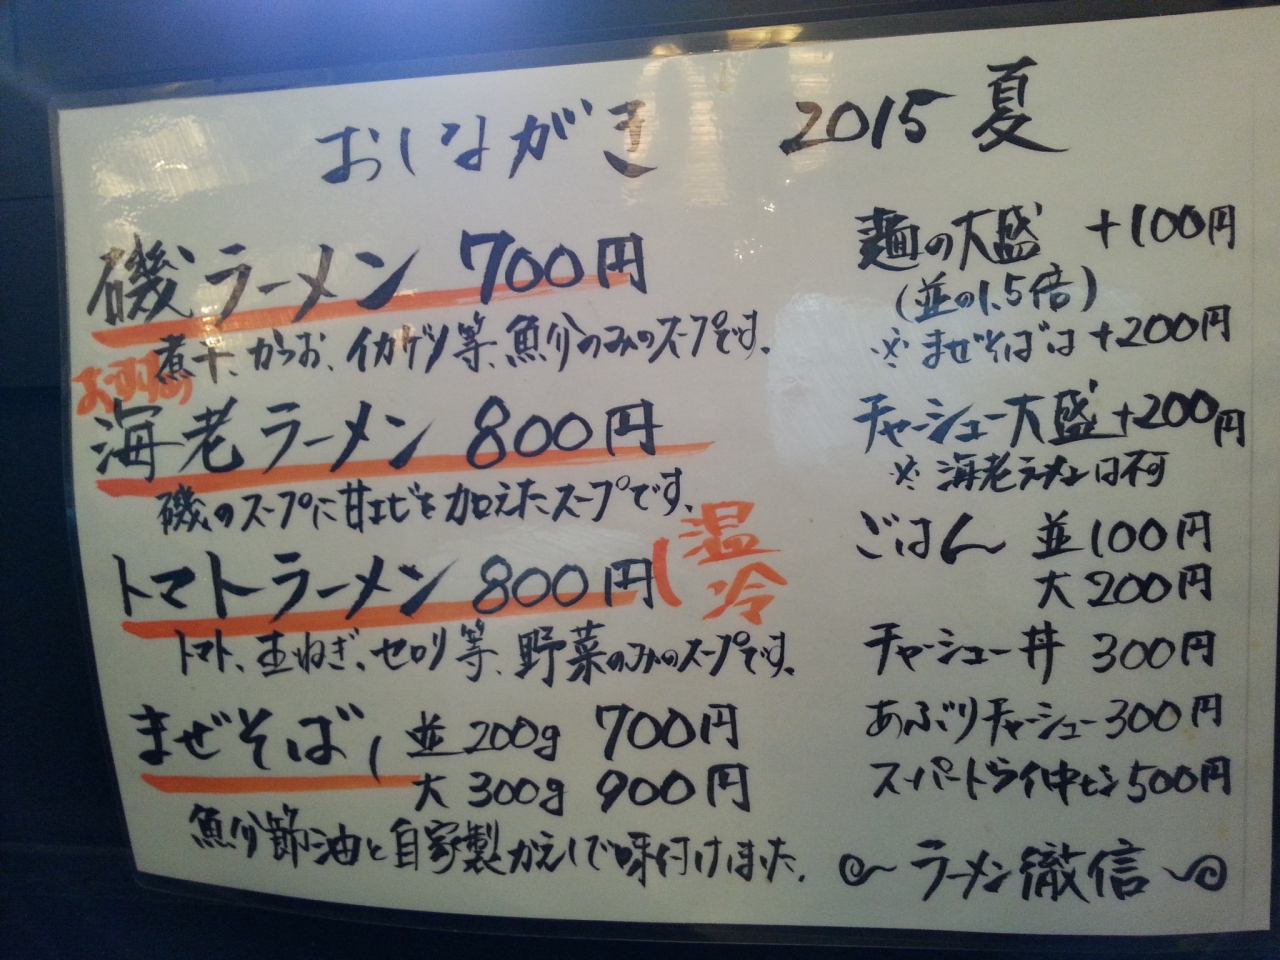 おしながき 2015 夏
磯ラーメン 700円
煮干、かつお、イカゲソ等、魚介のみのスープです。
おすすめ
海老ラーメン 800円
磯のスープに甘エビを加えたスープです。
トマトラーメン 800円 温 冷
トマト、玉ねぎ、セロリ等、野菜のみのスープです。
まぜそば 並 200g 700円
大 300g 900円
魚介節油と自家製かえしで味付けました。
麺の大盛 +100円
(並の1.5倍)
※まぜそばは +200円
チャーシュー大盛 +200円
※海老ラーメンは不可
ごはん 並 100円
大 200円
チャーシュー丼 300円
あぶりチャーシュー 300円
スーパードライ中ビン 500円
ラーメン徹信